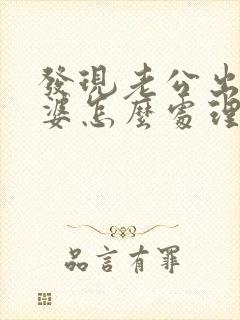 發現老公出
婆怎麼處理
品言有罪